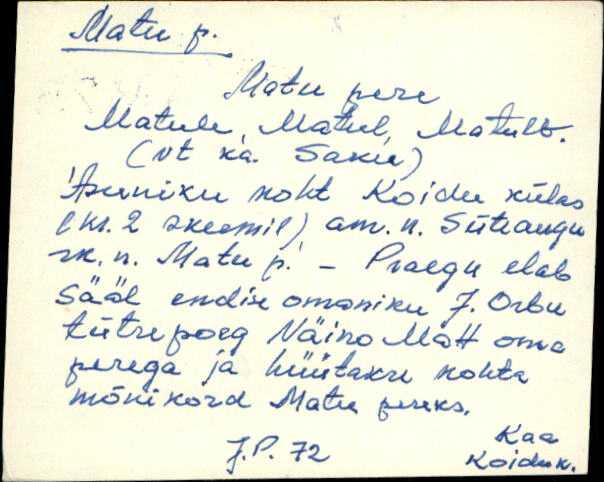 Matu p.
Matu pere
Matule, Matul, Matult.
(vt ka. Saku)
Asuniku koht Koidu külas
(kr. 2 skeemil) am. n. Süteaugu
rk. n. Matu p. – Praegu elab
sääl endise omaniku J. Orbu
tütrepoeg Näino Mätt oma
perega ja hüütakse kohta
mõnikord Matu pereks.
J.P. 72
Kaa
Koidu k.